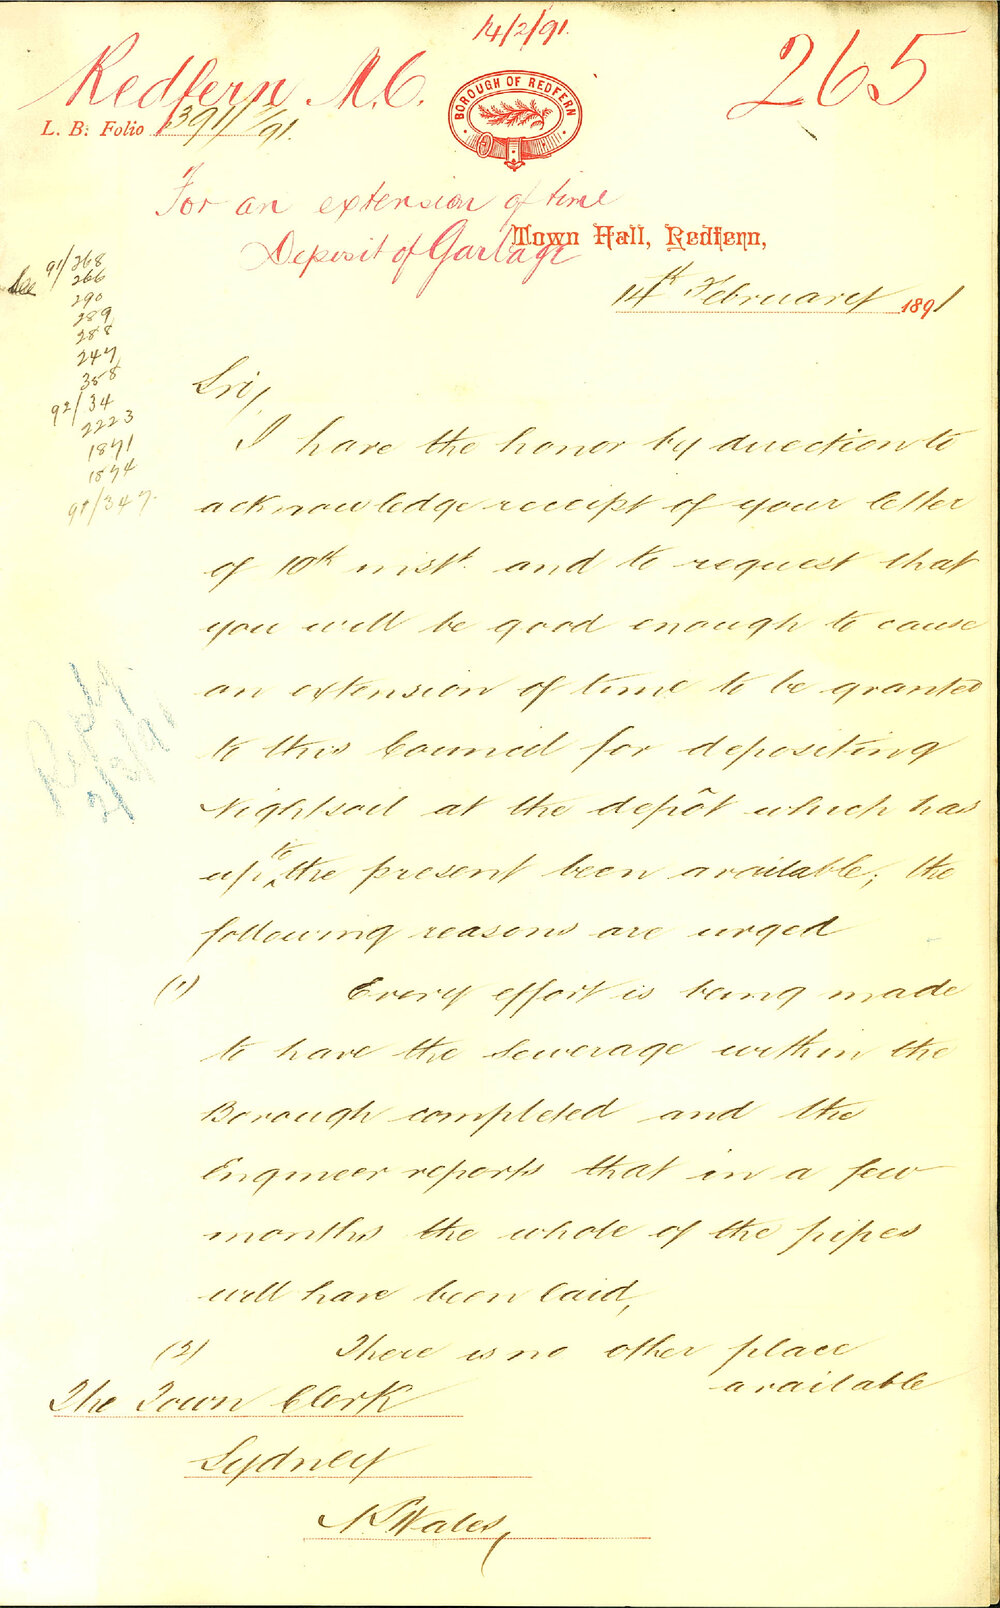 14/2/91.
Redfern M.C.
265
BOROUGH OF REDFERN
L. B. Folio 391/91.
For an extension of time
Deposit of Garbage
Town Hall, Redfern,
14th February 1891
See 91/268
266
290
289
288
247
358
92/34
2223
1871
1874
91/347.
Reply
2/3/91
Sir,
I have the honor by direction to
acknowledge receipt of your letter
of 10th inst. and to request that
you will be good enough to cause
an extension of time to be granted
to this Council for depositing
Nightsoil at the depôt which has
up to the present been available; the
following reasons are urged
(1) Every effort is being made
to have the Sewerage within the
Borough completed and the
Engineer reports that in a few
months the whole of the pipes
will have been laid,
(2) There is no other place
available
The Town Clerk
Sydney
N S Wales,